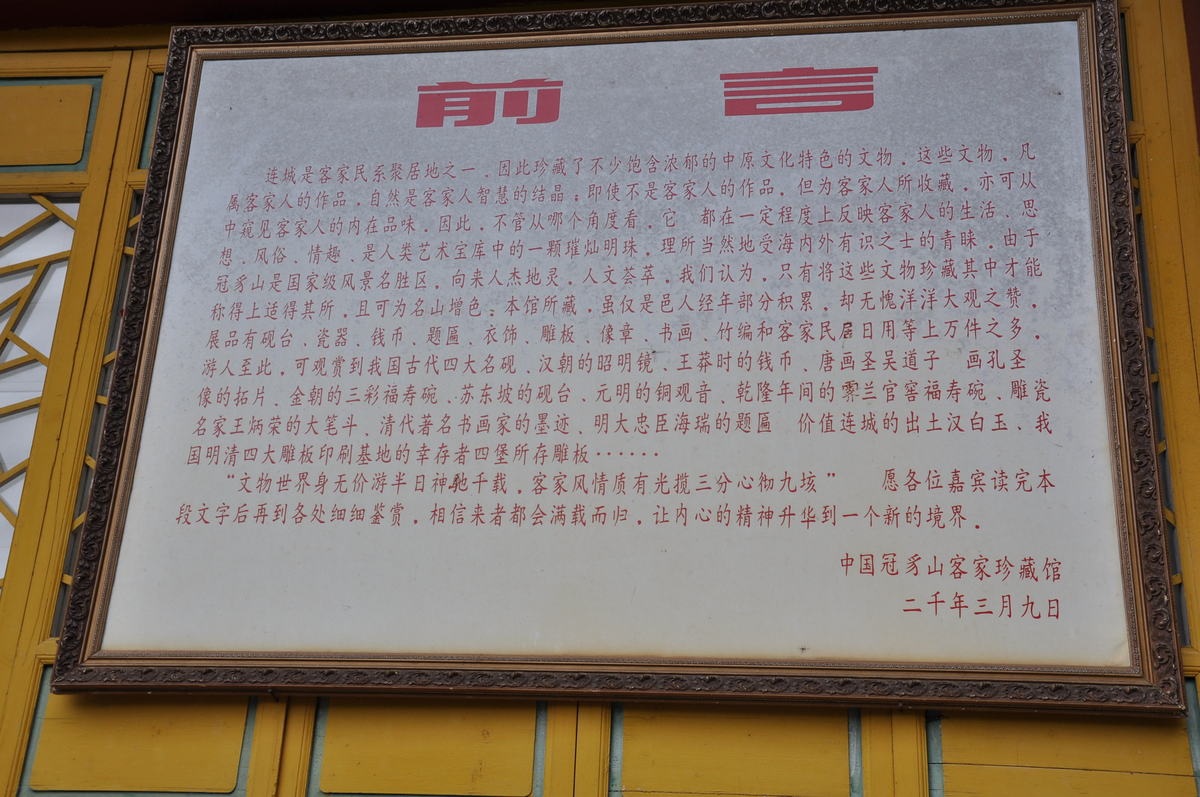 前言
连城是客家民系聚居地之一．因此珍藏了不少饱含浓郁的中原文化特色的文物．这些文物．凡
属客家人的作品．自然是客家人智慧的结晶；即使不是客家人的作品．但为客家人所收藏．亦可从
中窥见客家人的内在品味．因此．不管从哪个角度看．它 都在一定程度上反映客家人的生活、思
想、风俗、情趣、是人类艺术宝库中的一颗璀灿明珠．理所当然地受海内外有识之士的青睐．由于
冠豸山是国家级风景名胜区．向来人杰地灵．人文荟萃．我们认为．只有将这些文物珍藏其中才能
称得上适得其所．且可为名山增色．本馆所藏．虽仅是邑人经年部分积累．却无愧洋洋大观之赞．
展品有砚台、瓷器、钱币、题匾、衣饰、雕板、像章、书画、竹编和客家民居日用等上万件之多．
游人至此．可观赏到我国古代四大名砚、汉朝的昭明镜、王莽时的钱币、唐画圣吴道子 画孔圣
像的拓片、金朝的三彩福寿碗、苏东坡的砚台、元明的铜观音、乾隆年间的霁兰官窑福寿碗、雕瓷
名家王炳荣的大笔斗、清代著名书画家的墨迹、明大忠臣海瑞的题匾 价值连城的出土汉白玉、我
国明清四大雕板印刷基地的幸存者四堡所存雕板……
“文物世界身无价游半日神驰千载．客家风情质有光揽三分心彻九垓” 愿各位嘉宾读完本
段文字后再到各处细细鉴赏．相信来者都会满载而归．让内心的精神升华到一个新的境界．
中国冠豸山客家珍藏馆
二千年三月九日